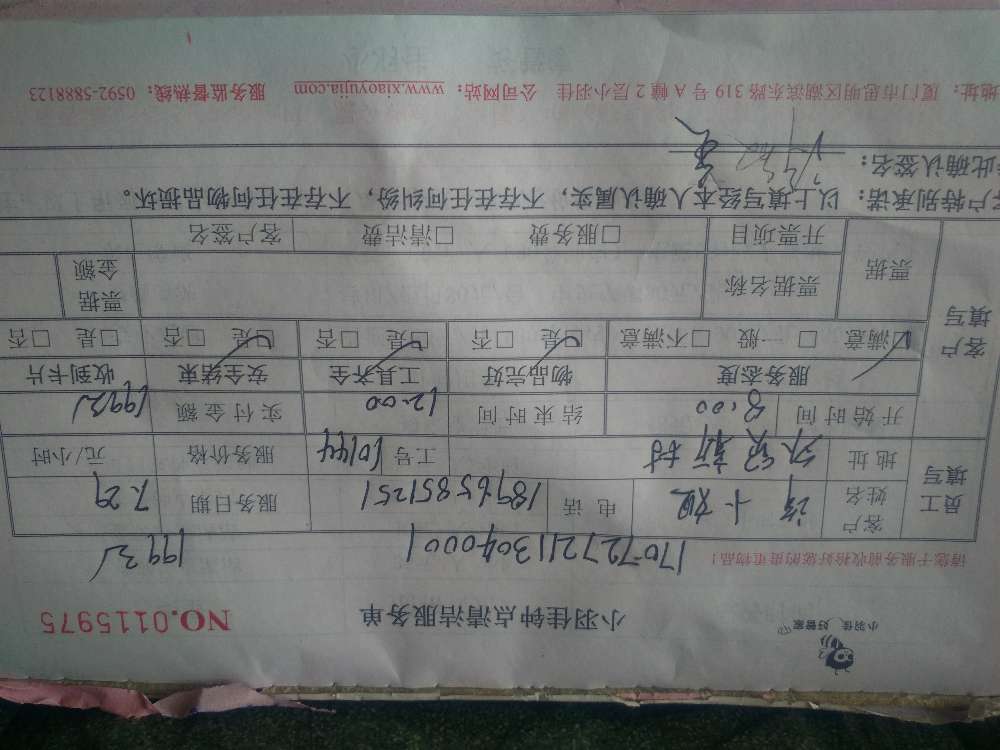 小羽佳 好管家
小羽佳钟点清洁服务单 NO.0115975
请您于服务前收拾好您的贵重物品!
1707272113040001 1993
员工填写 客户姓名 许小姐 电话 18965851251 服务日期 7.29
地址 永贤新村 工号 60144 服务价格 元/小时
开始时间 8:00 结束时间 12:00 实付金额 1993
客户填写 服务态度 物品完好 工具齐全 安全结束 收到卡片
☑满意 □一般 □不满意 ☑是 □否 ☑是 □否 ☑是 □否 □是 □否
票据 票据名称 票据金额
开票项目 □服务费 □清洁费 客户签名
客户特别承诺:以上填写经本人确认属实,不存在任何纠纷,不存在任何物品损坏。
此确认签名:
地址:厦门市思明区湖滨东路319号A幢2层小羽佳 公司网站:www.xiaoyujia.com 服务监督热线:0592-5888123